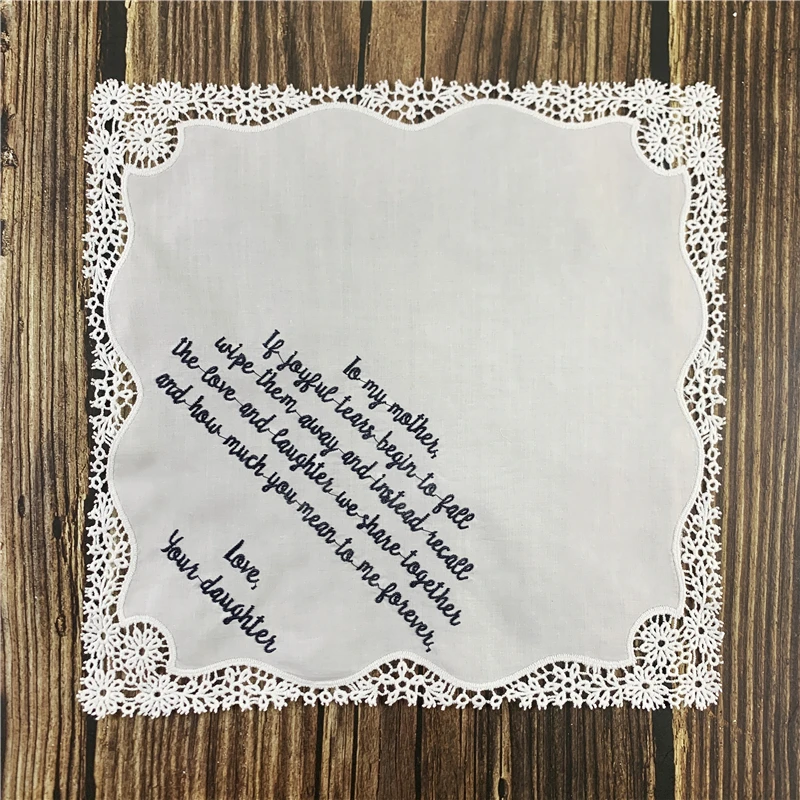 To my mother,
If joyful tears begin to fall
wipe them away and instead recall
the love and laughter we share together
and how much you mean to me forever,
Love,
Your daughter